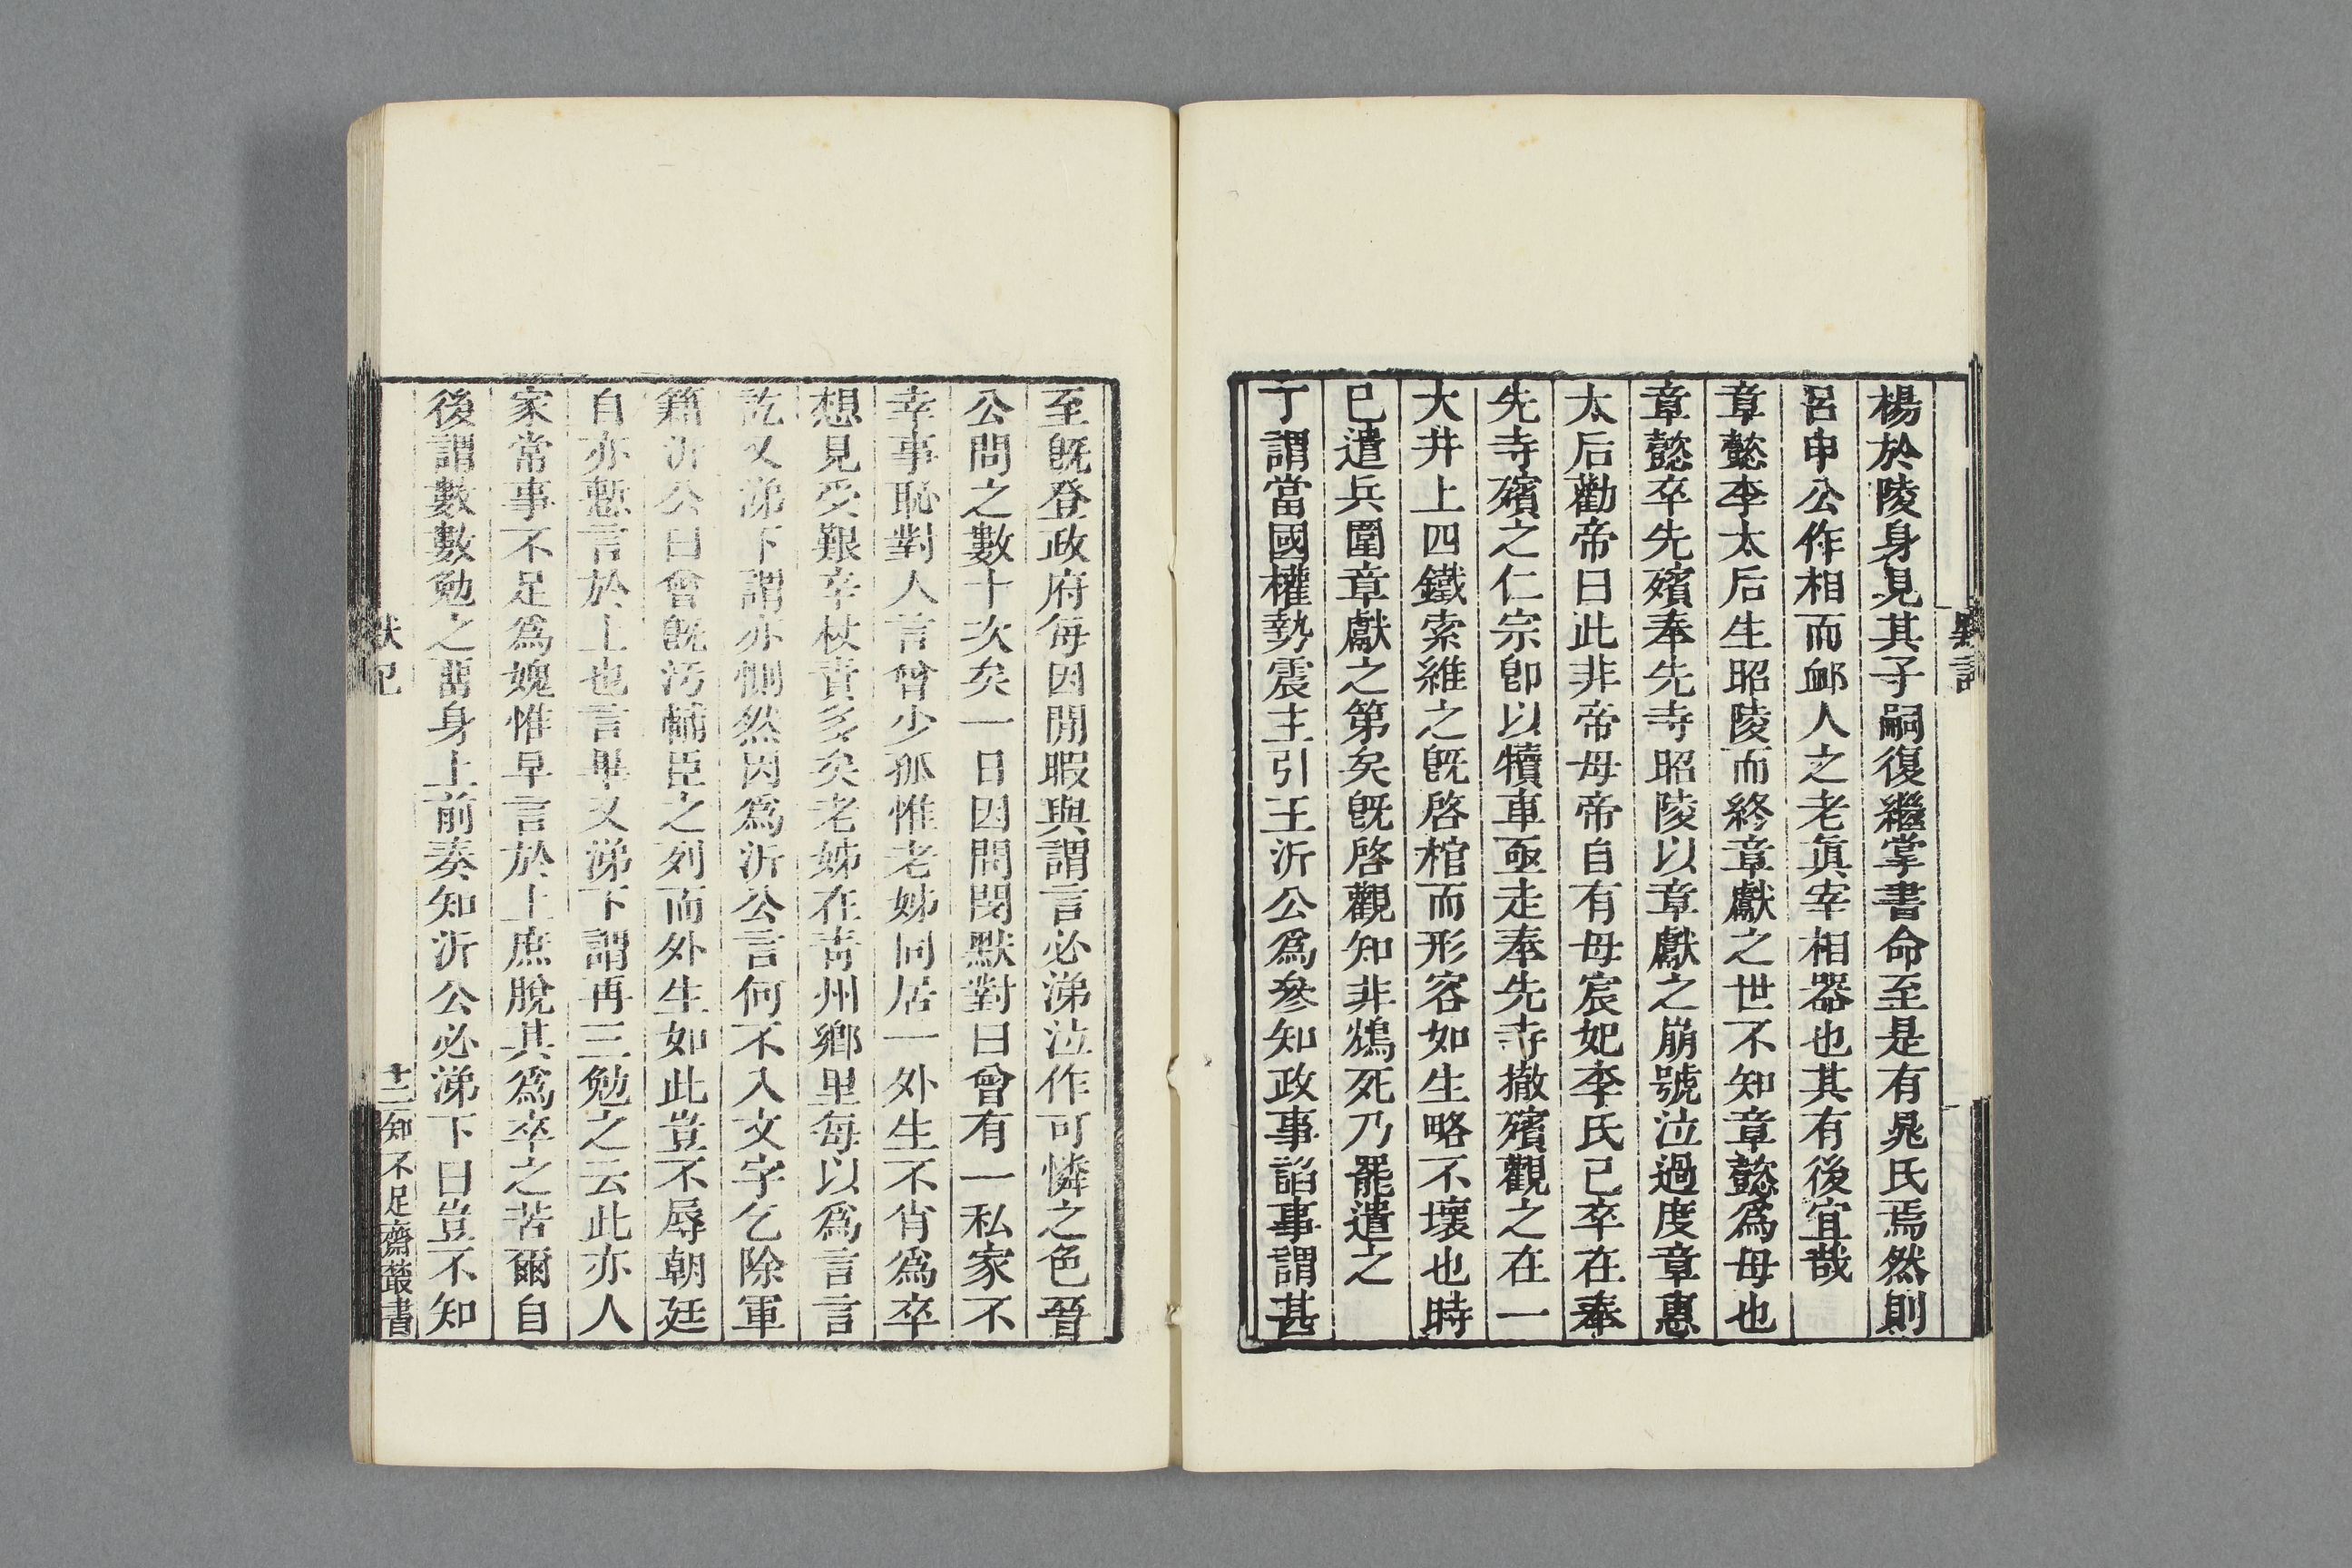 默記
楊於陵身見其子嗣復繼掌書命至是有晁氏焉然則
呂申公作相而䘏人之老真宰相器也其有後宜哉
章懿李太后生昭陵而終章獻之世不知章懿為母也
章懿卒先殯奉先寺昭陵以章獻之崩號泣過度章惠
太后勸帝曰此非帝母帝自有母宸妃李氏已卒在奉
先寺殯之仁宗卽以犢車亟走奉先寺撤殯觀之在一
大井上四鐵索維之旣啓棺而形容如生略不壞也時
已遣兵圍章獻之第矣旣啓觀知非鴆死乃罷遣之
丁謂當國權勢震主引王沂公為參知政事諂事謂甚
至旣登政府每因閒暇與謂言必涕泣作可憐之色晉
公問之數十次矣一日因問閔默對曰曾有一私家不
幸事恥對人言曾少孤惟老姊同居一外生不肖為卒
想見受艱辛杖責多矣老姊在靑州鄉里每以為言言
訖又涕下謂亦惻然因為沂公言何不入文字乞除軍
籍沂公曰曾旣汚輔臣之列而外生如此豈不辱朝廷
自亦慙言於上也言畢又涕下謂再三勉之云此亦人
家常事不足為媿惟早言於上庶脫其為卒之苦爾自
後謂數數勉之留身上前奏知沂公必涕下曰豈不知
默記
十二
知不足齋叢書